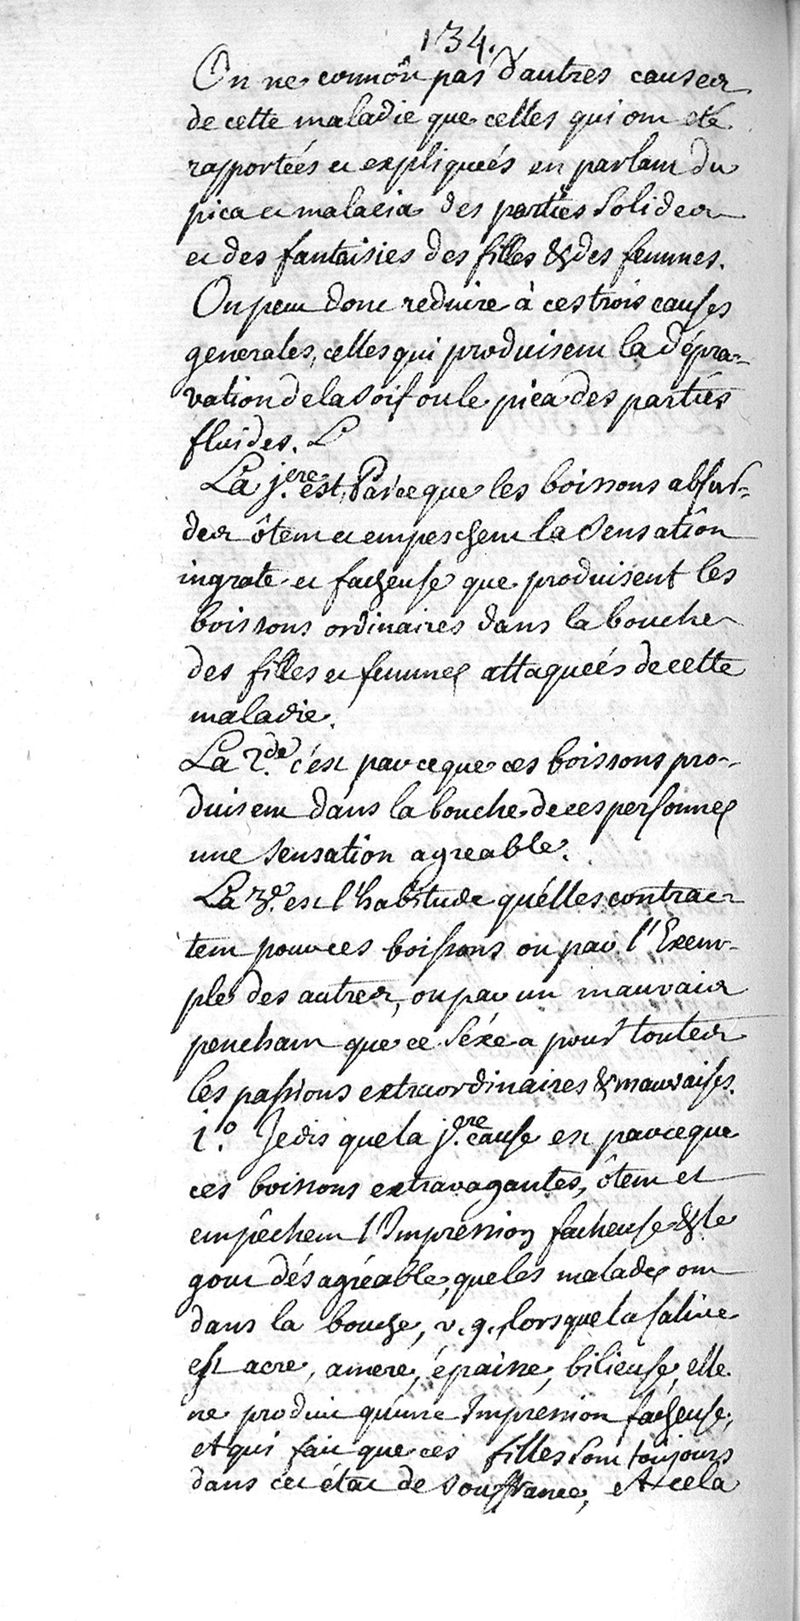 134.
On ne connôit pas d'autres causes
de cette maladie que celles qui ont eté
rapportées et expliqueés en parlant du
pica et malacia des parties solides
et des fantaisies des filles & des femmes.
On peut donc reduire à ces trois causes
generales, celles qui produisent la dépra-
vation de la soif ou le pica des parties
fluides.
La j.ere est, Parceque les boissons absur-
des ôtent et empeschent la sensation
ingrate et facheuse que produisent les
boissons ordinaires dans la bouche
des filles et femmes attaqueés de cette
maladie.
La 2.de c'est parceque ces boissons pro-
duisent dans la bouche de ces personnes
une sensation agreable.
La 3.e est l'habitude qu'élles contrac-
tent pour ces boissons ou par l'Exem-
ple des autres, ou par un mauvais
penchant que ce séxe a pour toutes
les passions extraordinaires & mauvaises.
1.° Je dis que la j.ere cause est parceque
ces boissons extravagantes, ôtent et
empêchent l'Impression facheuse & le
gout désagréable, que les malades ont
dans la bouche, v. g., lorsque la salive
est acre, amere, épaisse, bilieuse, elle
ne produit qu'une Impression facheuse,
et qui fait que ces filles sont toujours
dans cet état de souffrance, et cela